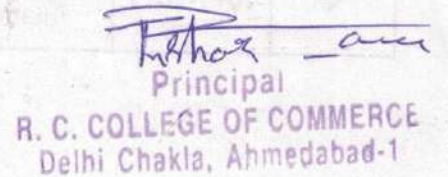 Principal
R. C. COLLEGE OF COMMERCE
Delhi Chakla, Ahmedabad-1